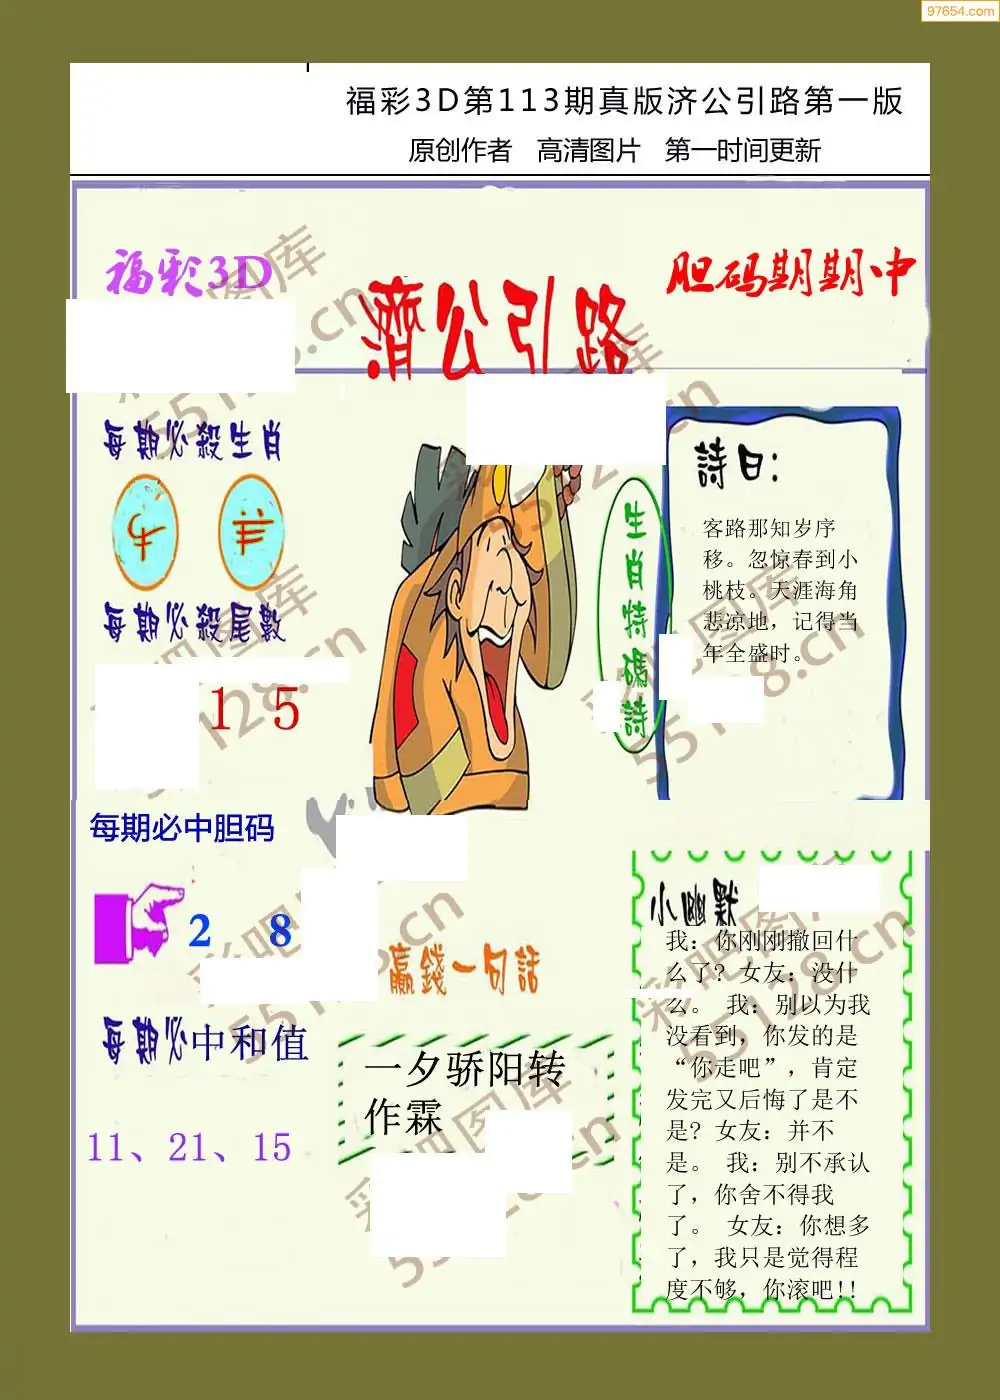 97654.com
福彩3D第113期真版济公引路第一版
原创作者 高清图片 第一时间更新
福彩3D
胆码期期中
濟公引路
每期必殺生肖
牛 羊
每期必殺尾數
1 5
生肖特碼詩
詩曰:
客路那知岁序
移。忽惊春到小
桃枝。天涯海角
悲凉地，记得当
年全盛时。
每期必中胆码
2 8
每期必中和值
11、21、15
贏錢一句話
一夕骄阳转
作霖
小幽默
我：你刚刚撤回什
么了? 女友：没什
么。 我：别以为我
没看到，你发的是
“你走吧”，肯定
发完又后悔了是不
是? 女友：并不
是。 我：别不承认
了，你舍不得我
了。 女友：你想多
了，我只是觉得程
度不够，你滚吧!!
彩吧图库
55128.cn